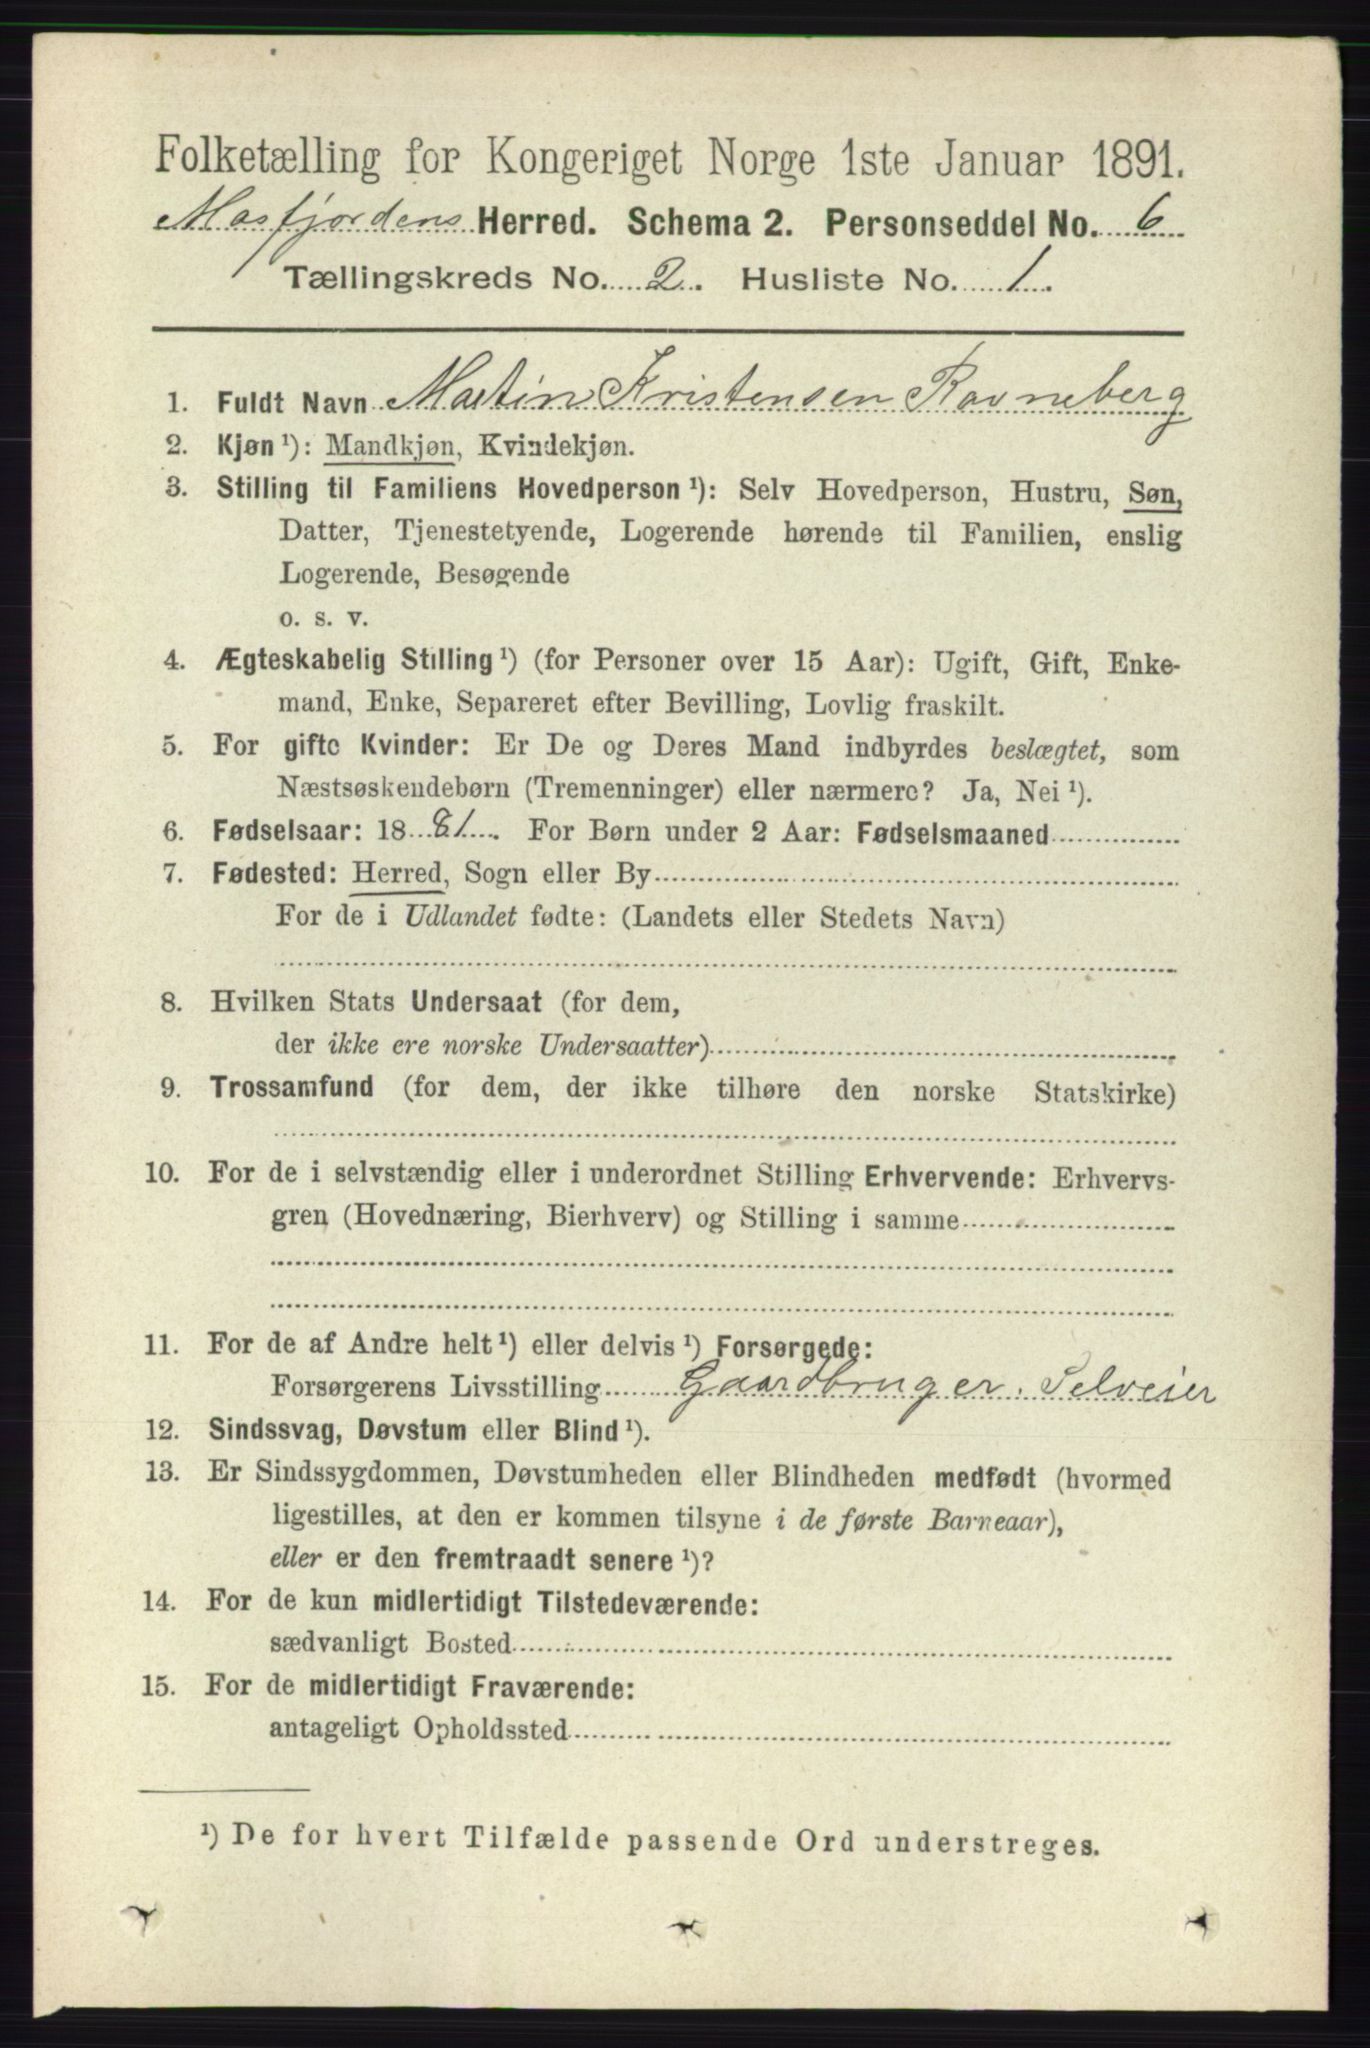 Folketælling for Kongeriget Norge 1ste Januar 1891.
Masfjordens Herred. Schema 2. Personseddel No. 6
Tællingskreds No. 2. Husliste No. 1.
1. Fuldt Navn Martin Kristensen Ravneberg
2. Kjøn ¹): Mandkjøn, Kvindekjøn.
3. Stilling til Familiens Hovedperson ¹): Selv Hovedperson, Hustru, Søn,
Datter, Tjenestetyende, Logerende hørende til Familien, enslig
Logerende, Besøgende
o. s. v.
4. Ægteskabelig Stilling ¹) (for Personer over 15 Aar): Ugift, Gift, Enke-
mand, Enke, Separeret efter Bevilling, Lovlig fraskilt.
5. For gifte Kvinder: Er De og Deres Mand indbyrdes beslægtet, som
Næstsøskendebørn (Tremenninger) eller nærmere? Ja, Nei ¹).
6. Fødselsaar: 1881. For Børn under 2 Aar: Fødselsmaaned
7. Fødested: Herred, Sogn eller By
For de i Udlandet fødte: (Landets eller Stedets Navn)
8. Hvilken Stats Undersaat (for dem,
der ikke ere norske Undersaatter)
9. Trossamfund (for dem, der ikke tilhøre den norske Statskirke)
10. For de i selvstændig eller i underordnet Stilling Erhvervende: Erhvervs-
gren (Hovednæring, Bierhverv) og Stilling i samme
11. For de af Andre helt ¹) eller delvis ¹) Forsørgede:
Forsørgerens Livsstilling Gaardbruger. Selveier
12. Sindssvag, Døvstum eller Blind ¹).
13. Er Sindssygdommen, Døvstumheden eller Blindheden medfødt (hvormed
ligestilles, at den er kommen tilsyne i de første Barneaar),
eller er den fremtraadt senere ¹)?
14. For de kun midlertidigt Tilstedeværende:
sædvanligt Bosted
15. For de midlertidigt Fraværende:
antageligt Opholdssted
¹) De for hvert Tilfælde passende Ord understreges.